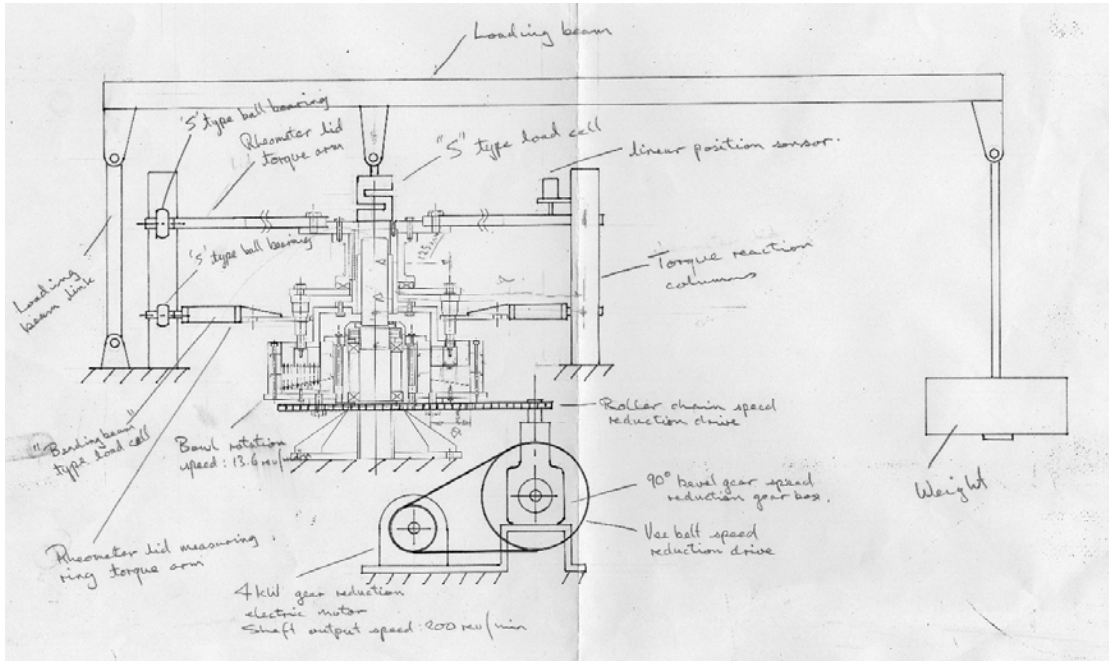 Loading beam
'S' type ball bearing
Rheometer lid
torque arm
"S" type load cell
linear position sensor.
'S' type ball bearing
Loading
beam link
Torque reaction
columns
"Bending beam"
type load cell
Bowl rotation
speed : 13.6 rev/min
Roller chain speed
reduction drive
90° bevel gear speed
reduction gear box.
Weight
Vee belt speed
reduction drive
Rheometer lid measuring
ring torque arm
4 kW gear reduction
electric motor
Shaft output speed : 200 rev/min